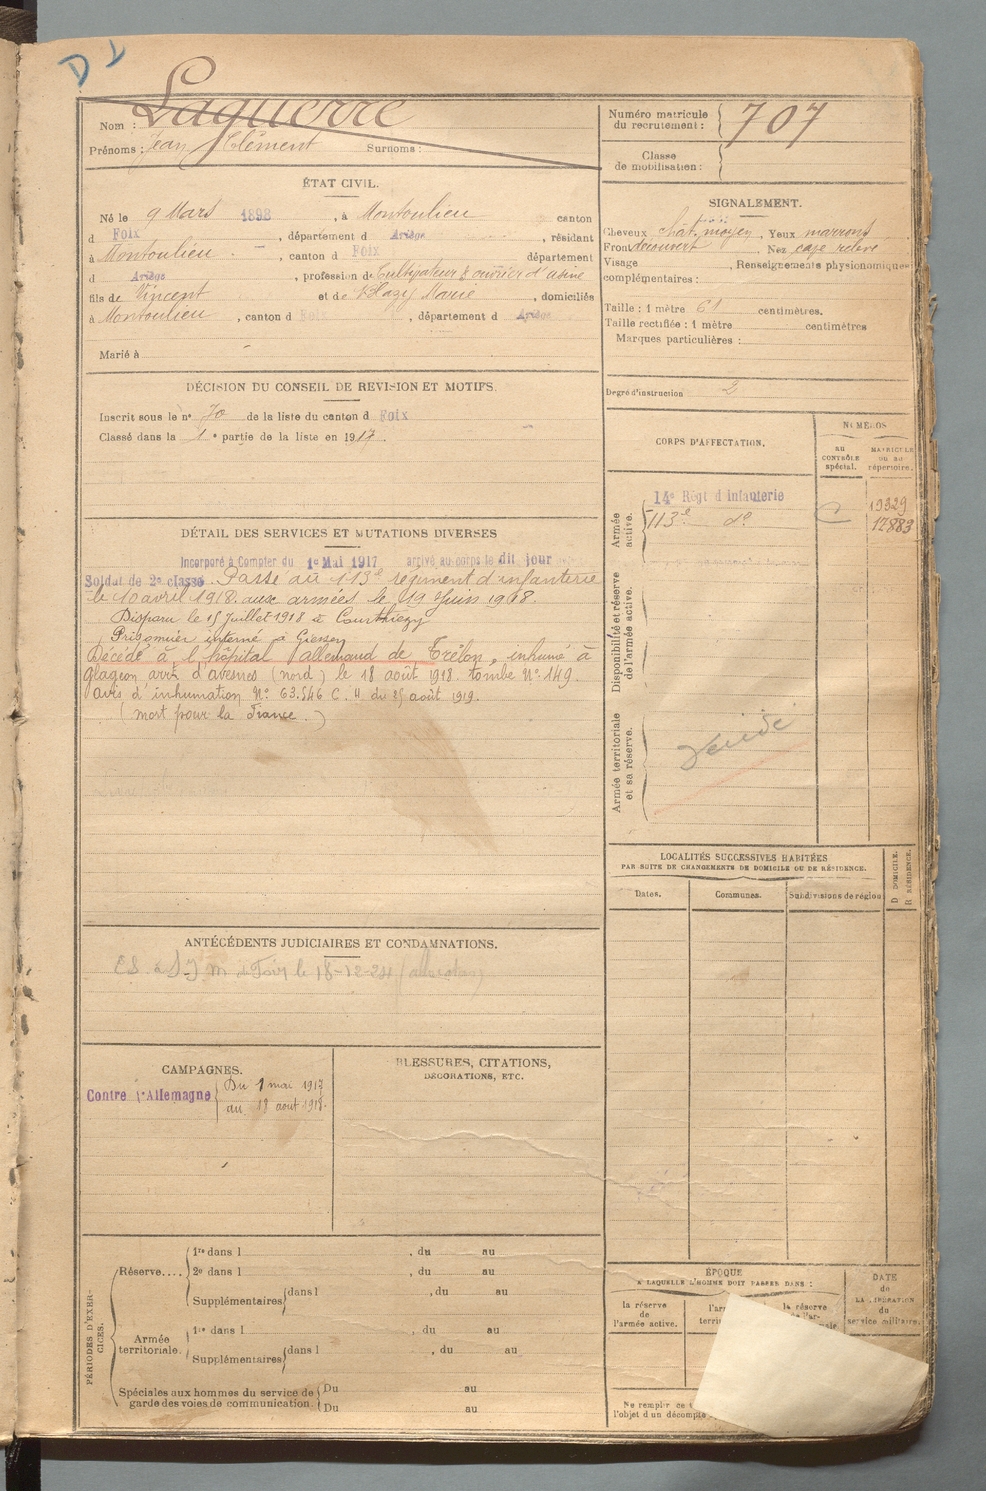 D 1
Nom : Laguerre
Prénoms : Jean Clément Surnoms :
Numéro matricule du recrutement : 707
Classe de mobilisation :
ÉTAT CIVIL.
Né le 9 Mars 1898, à Montoulieu canton
d Foix, département d Ariège, résidant
à Montoulieu, canton d Foix département
d Ariège, profession de Cultivateur & ouvrier d'usine
fils de Vincent et de Marie, domiciliés
à Montoulieu, canton d Foix, département d Ariège
Marié à
SIGNALEMENT.
Cheveux chat. moyen, Yeux marrons
Front découvert, Nez cave relevé
Visage , Renseignements physionomiques
complémentaires :
Taille : 1 mètre 61 centimètres.
Taille rectifiée : 1 mètre centimètres
Marques particulières :
Degré d'instruction 2
DÉCISION DU CONSEIL DE REVISION ET MOTIFS.
Inscrit sous le n° 70 de la liste du canton d Foix
Classé dans la 1e partie de la liste en 1917.
DÉTAIL DES SERVICES ET MUTATIONS DIVERSES
Incorporé à Compter du 1er Mai 1917 arrivé au corps le dit jour
Soldat de 2e classe. Passé au 113e régiment d'infanterie
le 10 avril 1918. aux armées le 19 Juin 1918.
Disparu le 15 Juillet 1918 à Courthiézy
Prisonnier interné à Giessen
Décédé à l'hôpital allemand de Trélon, inhumé à
Glageon arrt d'avesnes (nord) le 18 août 1918. tombe N° 149.
avis d'inhumation N° 63.546 C. H du août 1919.
(mort pour la France.)
CORPS D'AFFECTATION.
NUMÉROS
au CONTRÔLE spécial.
MATRICULE ou au répertoire.
Armée active.
14e Régt d'infanterie 19329
113e do C 17883
Disponibilité et réserve de l'armée active.
Armée territoriale et sa réserve.
LOCALITÉS SUCCESSIVES HABITÉES
PAR SUITE DE CHANGEMENTS DE DOMICILE OU DE RÉSIDENCE.
Dates. Communes. Subdivisions de région
D DOMICILE. R RÉSIDENCE.
ANTÉCÉDENTS JUDICIAIRES ET CONDAMNATIONS.
de Foix le 18-12-24
CAMPAGNES.
Contre l'Allemagne
Du 1 mai 1917
au 18 aout 1918.
BLESSURES, CITATIONS,
DÉCORATIONS, ETC.
PÉRIODES D'EXERCICES.
Réserve....
1re dans l , du au
2e dans l , du au
Supplémentaires dans l , du au
Armée territoriale.
1re dans l , du au
Supplémentaires dans l , du au
Spéciales aux hommes du service de garde des voies de communication.
Du au
Du au
ÉPOQUE
A LAQUELLE L'HOMME DOIT PASSER DANS :
la réserve de l'armée active.
l'ar
terri
la réserve
DATE de LA LIBÉRATION du service militaire.
Ne remplir ce
l'objet d'un décompte